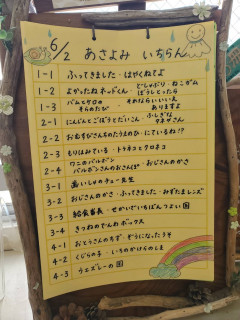 6/2 あさよみ いちらん
1-1 ふってきました・はやくねてよ
1-2 よかったね ネッドくん・どしゃぶり・ねこガム
ぼうしとったら
1-3 バムとケロの そらのたび・それならいいいえ ありますよ
2-1 にんじんとごぼうとだいこん・ふしぎな
たまがさん
2-2 おむすびさんちのたうえのひ・にているね!?
2-3 もりはみている・トラネコとクロネコ
2-4 ワニのバルボン
バルボンさんのおさんぽ・おじさんのかさ
3-1 歯いしゃのチュー先生
3-2 おじさんのかさ・ふってきました・みずたまレンズ
3-3 給食番長・せかいでいちばんつよい国
3-4 きつねのでんわボックス
4-1 おとうさんのちず・ぞうになったうそ
4-2 くじらの子・いちのかけのしま
4-3 ウエズレーの国